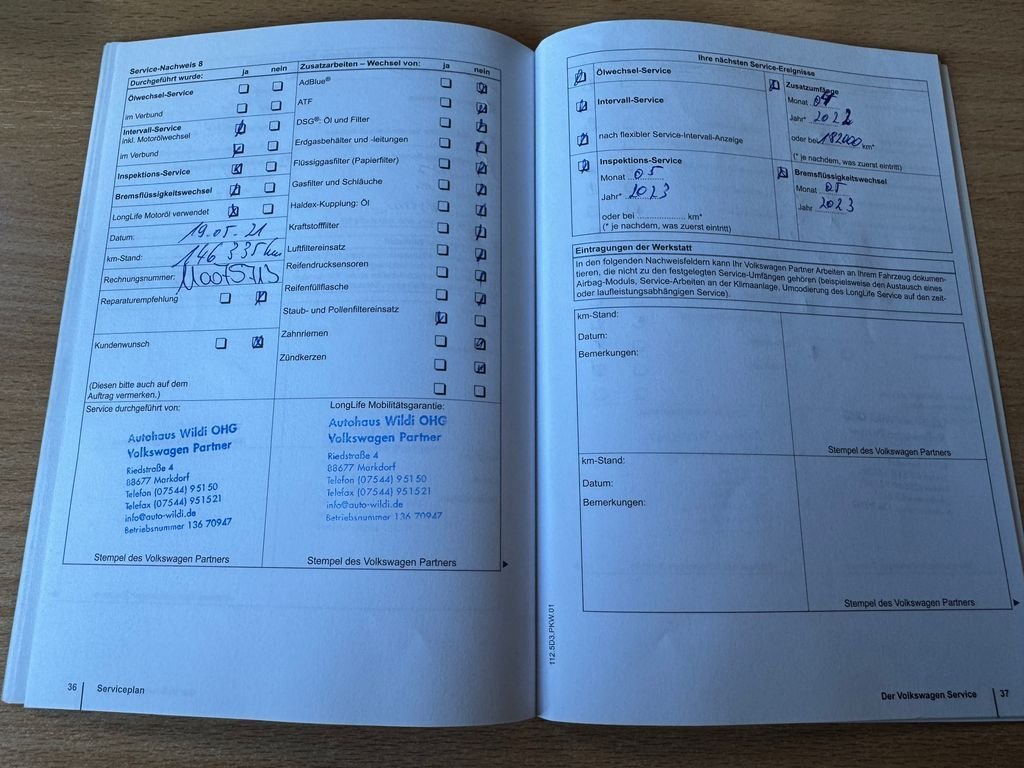 Service-Nachweis 8
Durchgeführt wurde: ja nein
Ölwechsel-Service
im Verbund
Intervall-Service
inkl. Motorölwechsel
im Verbund
Inspektions-Service
Bremsflüssigkeitswechsel
LongLife Motoröl verwendet
Datum: 19.05.21
km-Stand: 146 335 km
Rechnungsnummer:
Reparaturempfehlung
Kundenwunsch
(Diesen bitte auch auf dem
Auftrag vermerken.)
Zusatzarbeiten – Wechsel von: ja nein
AdBlue®
ATF
DSG®: Öl und Filter
Erdgasbehälter und -leitungen
Flüssiggasfilter (Papierfilter)
Gasfilter und Schläuche
Haldex-Kupplung: Öl
Kraftstofffilter
Luftfiltereinsatz
Reifendrucksensoren
Reifenfüllflasche
Staub- und Pollenfiltereinsatz
Zahnriemen
Zündkerzen
Service durchgeführt von:
Autohaus Wildi OHG
Volkswagen Partner
Riedstraße 4
88677 Markdorf
Telefon (07544) 951 50
Telefax (07544) 951521
info@auto-wildi.de
Betriebsnummer 136 70947
Stempel des Volkswagen Partners
LongLife Mobilitätsgarantie:
Autohaus Wildi OHG
Volkswagen Partner
Riedstraße 4
88677 Markdorf
Telefon (07544) 951 50
Telefax (07544) 951521
info@auto-wildi.de
Betriebsnummer 136 70947
Stempel des Volkswagen Partners
36 Serviceplan
Ihre nächsten Service-Ereignisse
Ölwechsel-Service
Intervall-Service
nach flexibler Service-Intervall-Anzeige
Inspektions-Service
Monat 05
Jahr* 2023
oder bei .................. km*
(* je nachdem, was zuerst eintritt)
Zusatzumfänge
Monat
Jahr* 2022
oder bei 182000 km*
(* je nachdem, was zuerst eintritt)
Bremsflüssigkeitswechsel
Monat 05
Jahr 2023
Eintragungen der Werkstatt
In den folgenden Nachweisfeldern kann Ihr Volkswagen Partner Arbeiten an Ihrem Fahrzeug dokumen-
tieren, die nicht zu den festgelegten Service-Umfängen gehören (beispielsweise den Austausch eines
Airbag-Moduls, Service-Arbeiten an der Klimaanlage, Umcodierung des LongLife Service auf den zeit-
oder laufleistungsabhängigen Service).
km-Stand:
Datum:
Bemerkungen:
Stempel des Volkswagen Partners
km-Stand:
Datum:
Bemerkungen:
Stempel des Volkswagen Partners
112.5D3.PKW.01
Der Volkswagen Service 37